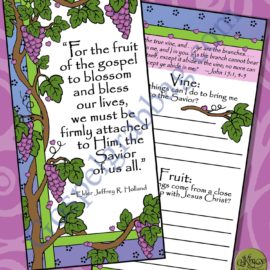 "For the fruit
of the gospel
to blossom
and bless
our lives,
we must be
firmly attached
to Him, the
Savior
of us all."
—Elder Jeffrey R. Holland
the true vine, and
are the branches.
me, and I
you. As the branch cannot bear
itself, except it abide in the vine; no more can
except ye abide in me."
—John 15:1, 4-5
Vine:
things can I do to bring me
to the Savior?
Fruit:
things come from a close
up with Jesus Christ?